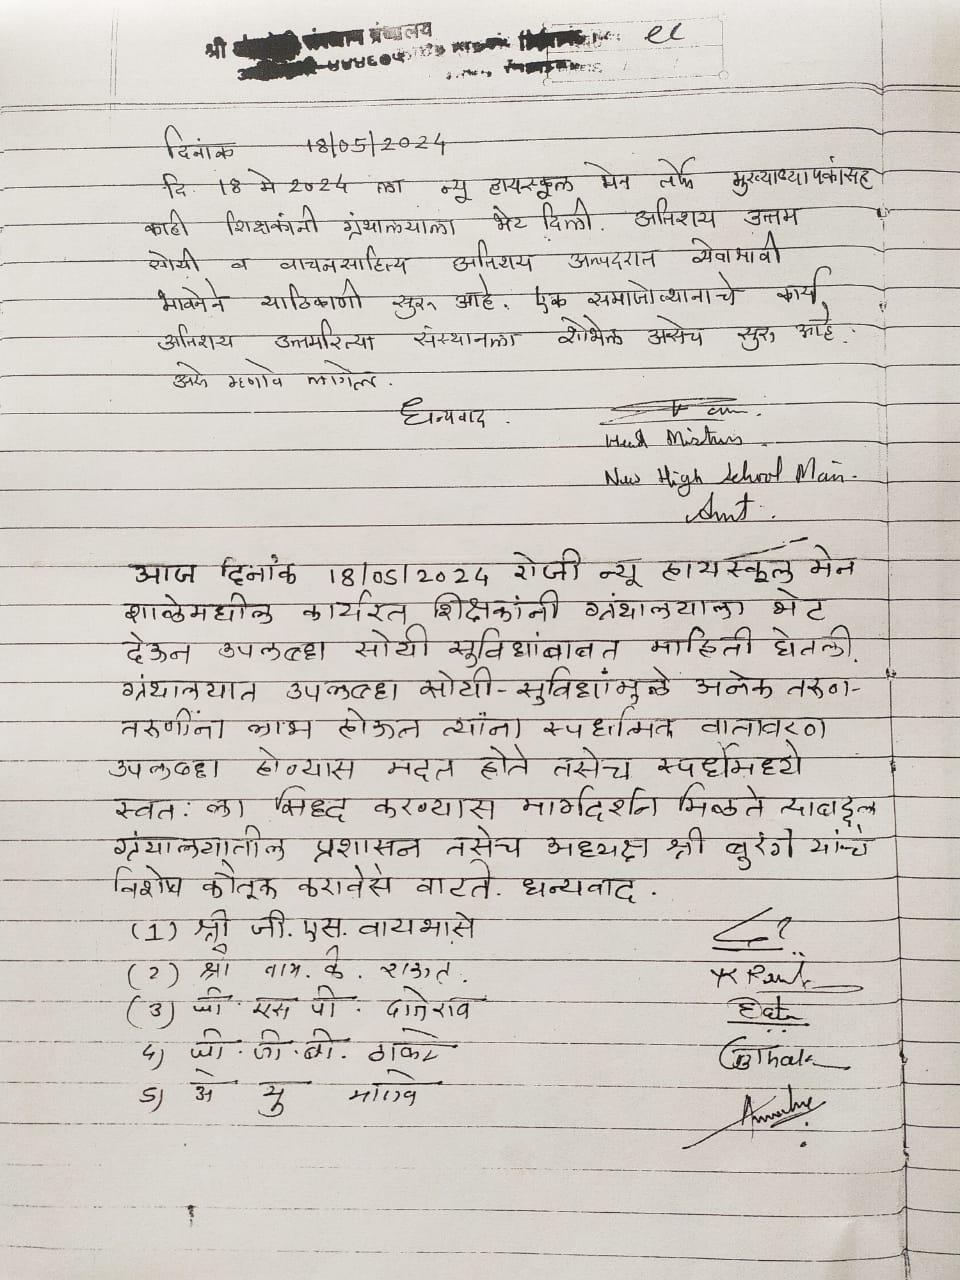 श्री संस्थान ग्रंथालय
दिनांक 18/05/2024
दि. 18 मे 2024 ला न्यू हायस्कूल मेन तर्फे मुख्याध्यापकांसह
काही शिक्षकांनी ग्रंथालयाला भेट दिली. अतिशय उत्तम
सोयी व वाचनसाहित्य अतिशय अल्पदरात सेवाभावी
भावनेने याठिकाणी सुरू आहे. एक समाजोत्थानाचे कार्य
अतिशय उत्तमरित्या संस्थानला शोभेल असेच सुरु आहे.
असे म्हणावे लागेल.
धन्यवाद.
Head Mistress
New High School Main.
Amt.
आज दिनांक 18/05/2024 रोजी न्यू हायस्कूल मेन
शाळेमधील कार्यरत शिक्षकांनी ग्रंथालयाला भेट
देऊन उपलब्ध सोयी सुविधांबाबत माहिती घेतली.
ग्रंथालयात उपलब्ध सोयी-सुविधांमुळे अनेक तरुण-
तरुणींना लाभ होऊन त्यांना स्पर्धात्मक वातावरण
उपलब्ध होण्यास मदत होते तसेच स्पर्धेमध्ये
स्वत: ला सिध्द करण्यास मार्गदर्शन मिळते त्याबद्दल
ग्रंथालयातील प्रशासन तसेच अध्यक्ष श्री बुरंगे यांचे
विशेष कौतूक करावेसे वाटते. धन्यवाद.
(1) श्री जी. एस. वायभासे
(2) श्री वाय. के. राऊत.
(3) श्री. एस पी. दातेराव
4) श्री. जी. बी. ठाकरे
5) अे यु